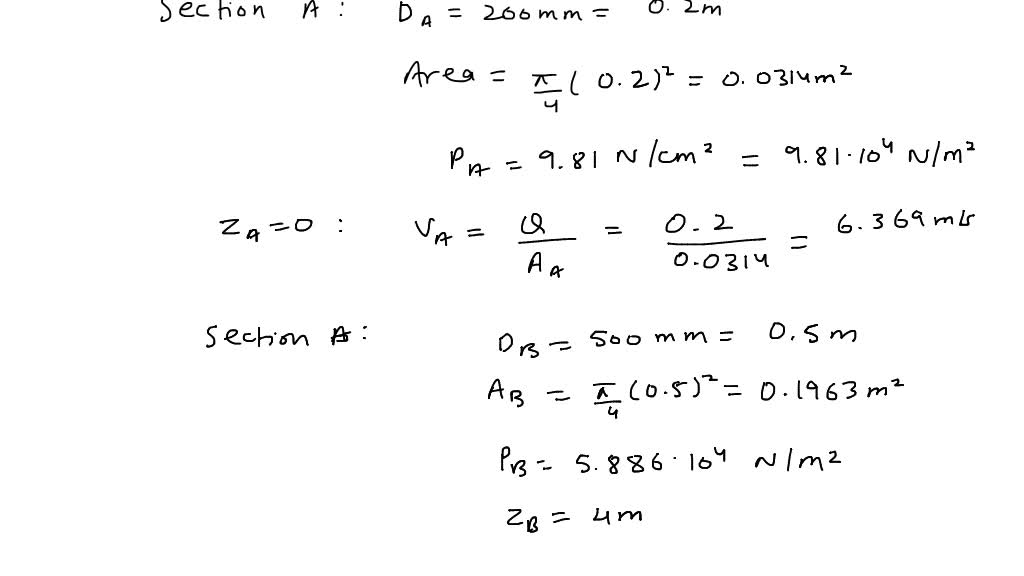 Section A : D_A = 200 mm = 0.2m
Area = π/4 ( 0.2)² = 0.0314m²
P_A = 9.81 N/cm² = 9.81·10⁴ N/m²
Z_A = 0 : V_A = Q/A_A = 0.2/0.0314 = 6.369 m/s
Section :
D_B = 500 mm = 0.5 m
A_B = π/4 (0.5)² = 0.1963 m²
P_B = 5.886·10⁴ N/m²
Z_B = 4m